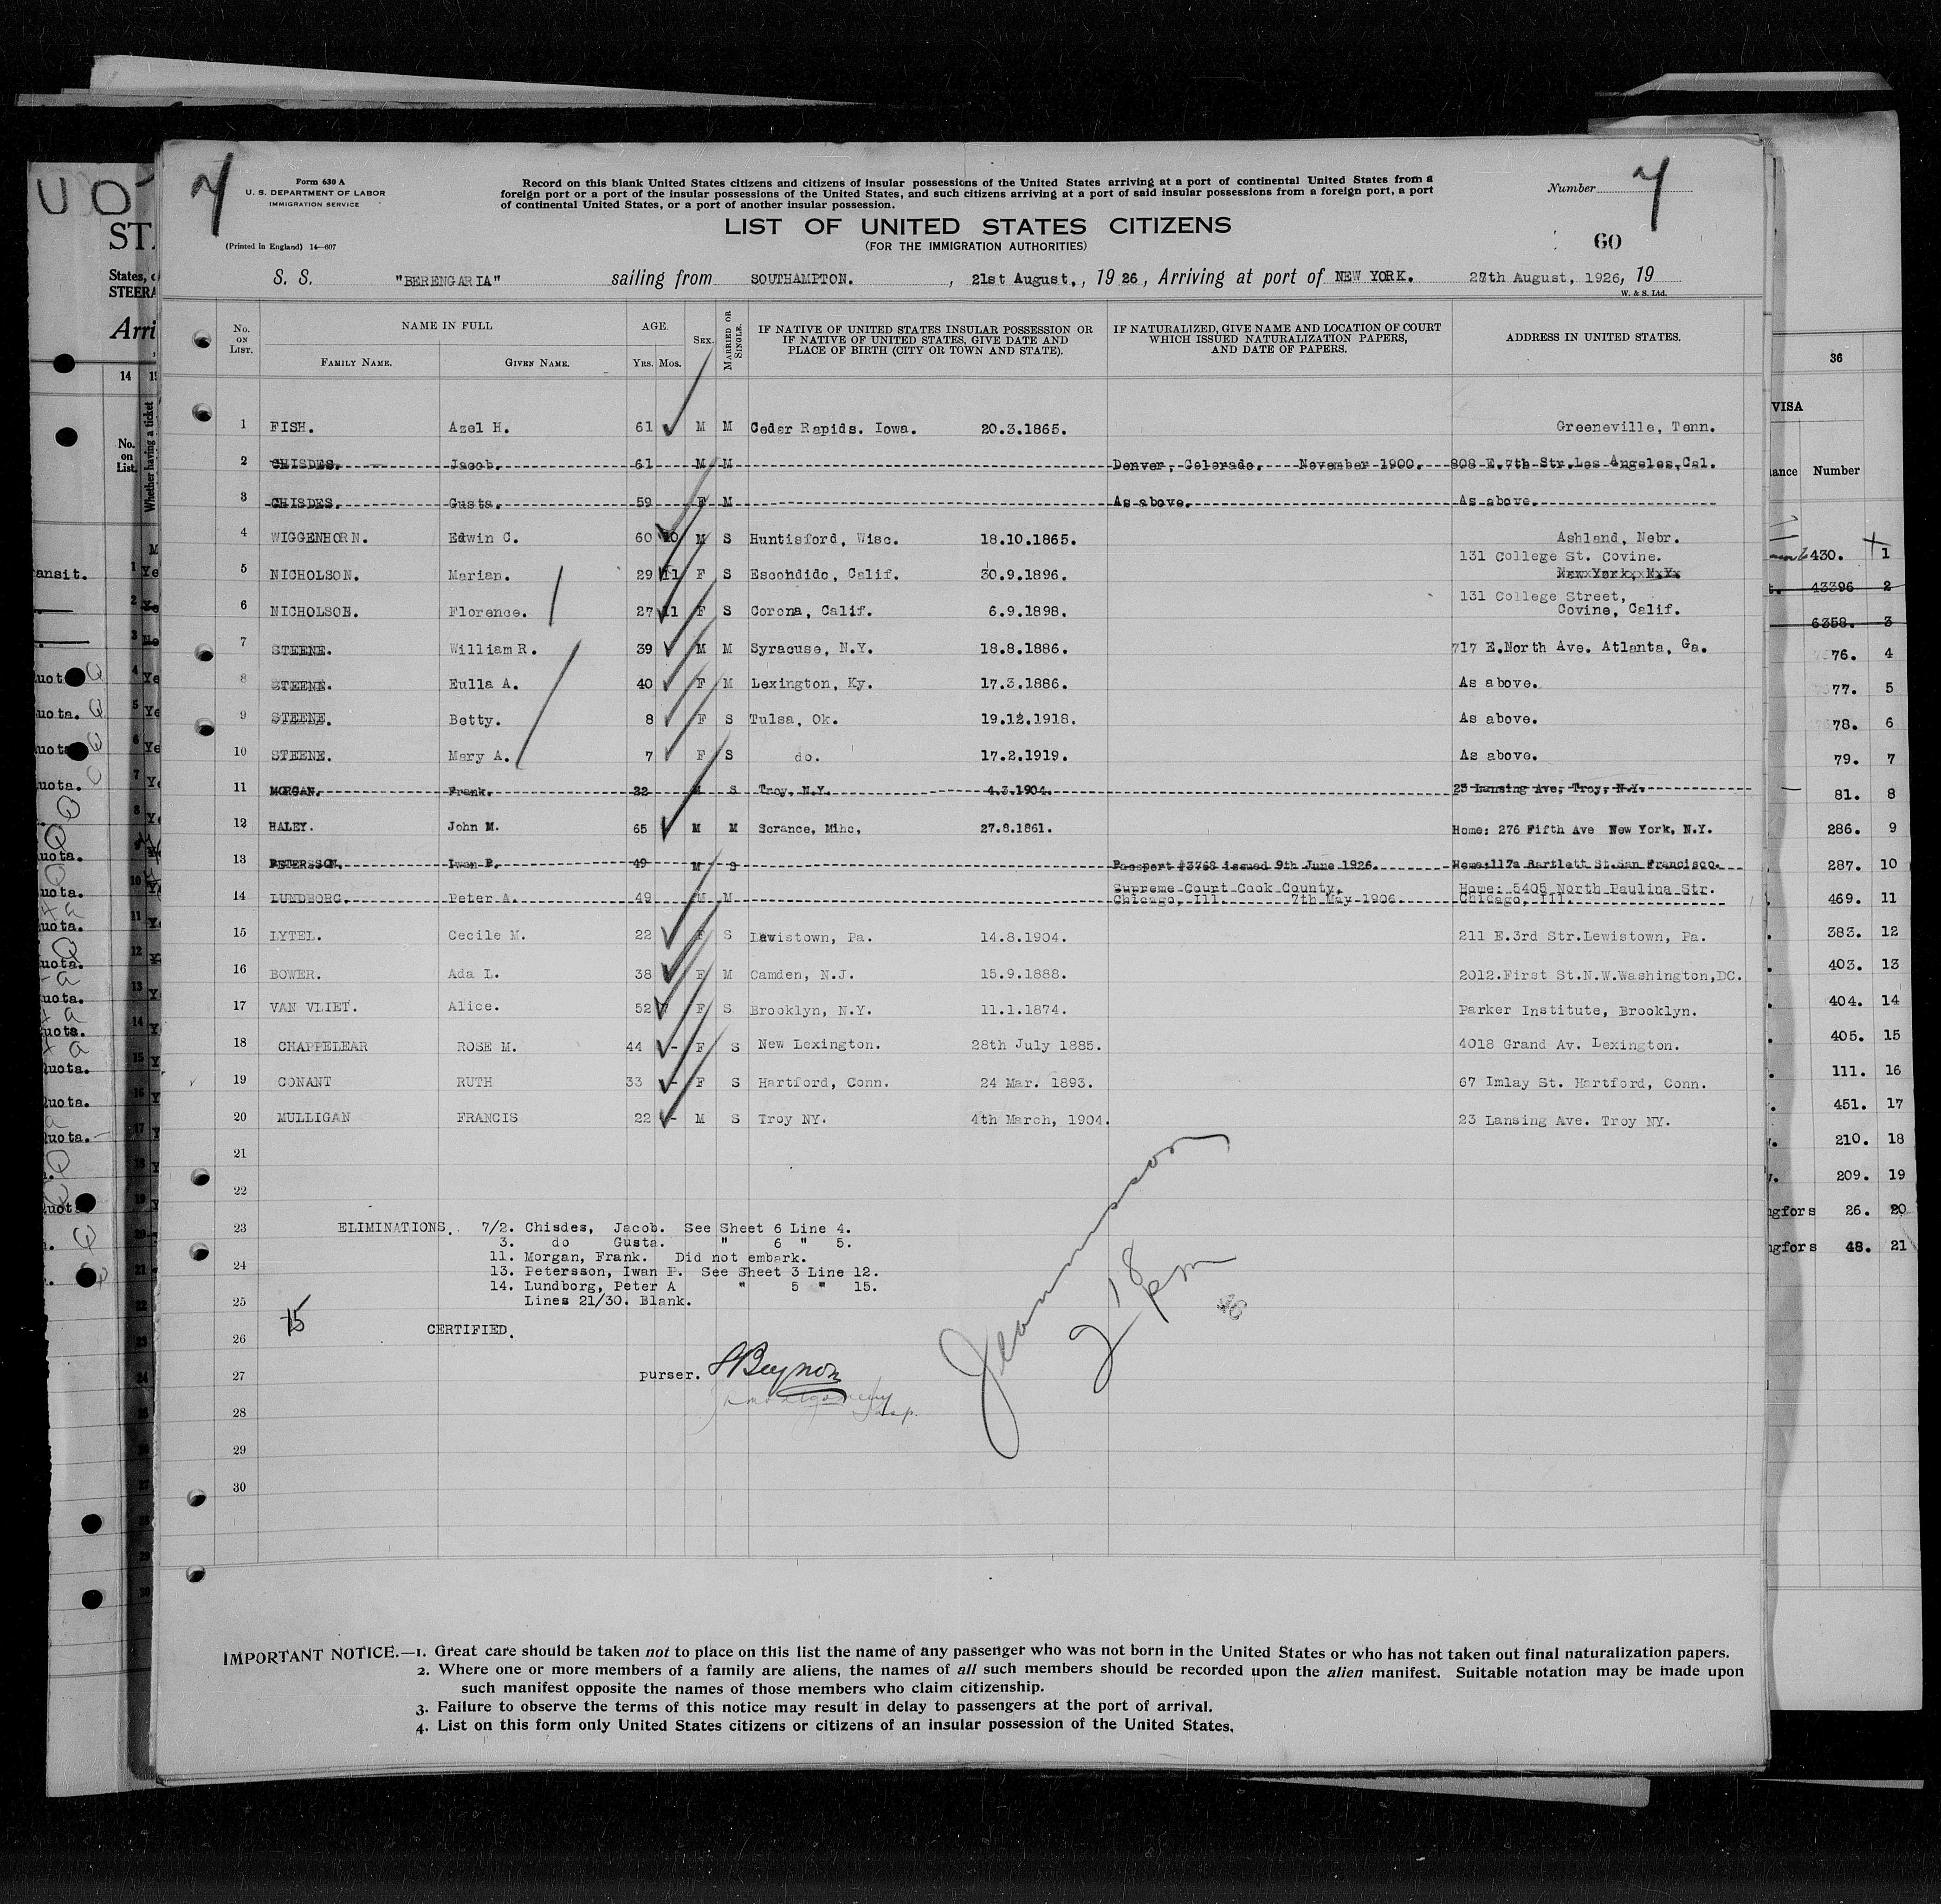 7
Form 630 A
U. S. DEPARTMENT OF LABOR
IMMIGRATION SERVICE
(Printed in England) 14—607
Record on this blank United States citizens and citizens of insular possessions of the United States arriving at a port of continental United States from a
foreign port or a port of the insular possessions of the United States, and such citizens arriving at a port of said insular possessions from a foreign port, a port
of continental United States, or a port of another insular possession.
Number 7
LIST OF UNITED STATES CITIZENS
(FOR THE IMMIGRATION AUTHORITIES)
60
S. S. "BERENGARIA" sailing from SOUTHAMPTON. , 21st August, , 1926 , Arriving at port of NEW YORK. 27th August, 1926, 19
W. & S. Ltd.
No. ON LIST.
NAME IN FULL
FAMILY NAME. GIVEN NAME.
AGE.
YRS. MOS.
SEX.
MARRIED OR SINGLE.
IF NATIVE OF UNITED STATES INSULAR POSSESSION OR
IF NATIVE OF UNITED STATES, GIVE DATE AND
PLACE OF BIRTH (CITY OR TOWN AND STATE).
IF NATURALIZED, GIVE NAME AND LOCATION OF COURT
WHICH ISSUED NATURALIZATION PAPERS,
AND DATE OF PAPERS.
ADDRESS IN UNITED STATES.
1 FISH. Azel H. 61 M M Cedar Rapids. Iowa. 20.3.1865. Greeneville, Tenn.
2 CHISDES. Jacob. 61 M M Denver, Colorado. November 1900. 808 E.7th Str.Los Angeles,Cal.
3 CHISDES. Gusta. 59 F M As above. As above.
4 WIGGENHORN. Edwin C. 60 10 M S Huntisford, Wisc. 18.10.1865. Ashland, Nebr.
5 NICHOLSON. Marian. 29 11 F S Escondido, Calif. 30.9.1896. 131 College St. Covine.
New York, N.Y.
6 NICHOLSON. Florence. 27 11 F S Corona, Calif. 6.9.1898. 131 College Street,
Covine, Calif.
7 STEENE. William R. 39 M M Syracuse, N.Y. 18.8.1886. 717 E.North Ave. Atlanta, Ga.
8 STEENE. Eulla A. 40 F M Lexington, Ky. 17.3.1886. As above.
9 STEENE. Betty. 8 F S Tulsa, Ok. 19.12.1918. As above.
10 STEENE. Mary A. 7 F S do. 17.2.1919. As above.
11 MORGAN. Frank. 22 M S Troy, N.Y. 4.3.1904. 23 Lansing Ave, Troy, N.Y.
12 HALEY. John M. 65 M M Sorance, Mihc, 27.8.1861. Home: 276 Fifth Ave New York, N.Y.
13 PETERSSON. Iwan P. 49 M S Passport #3768 issued 9th June 1926. Home:117a Bartlett St.San Francisco.
14 LUNDBORG. Peter A. 49 M M Supreme Court Cook County.
Chicago, Ill. 7th May 1906. Home: 5405 North Paulina Str.
Chicago, Ill.
15 LYTEL. Cecile M. 22 F S Lewistown, Pa. 14.8.1904. 211 E.3rd Str.Lewistown, Pa.
16 BOWER. Ada L. 38 F M Camden, N.J. 15.9.1888. 2012.First St.N.W.Washington,DC.
17 VAN VLIET. Alice. 52 7 F S Brooklyn, N.Y. 11.1.1874. Parker Institute, Brooklyn.
18 CHAPPELEAR ROSE M. 44 - F S New Lexington. 28th July 1885. 4018 Grand Av. Lexington.
19 CONANT RUTH 33 - F S Hartford, Conn. 24 Mar. 1893. 67 Imlay St. Hartford, Conn.
20 MULLIGAN FRANCIS 22 - M S Troy NY. 4th March, 1904. 23 Lansing Ave. Troy NY.
21
22
23 ELIMINATIONS. 7/2. Chisdes, Jacob. See Sheet 6 Line 4.
3. do Gusta. " 6 " 5.
11. Morgan, Frank. Did not embark.
24 13. Petersson, Iwan P. See Sheet 3 Line 12.
14. Lundborg, Peter A " 5 " 15.
25 Lines 21/30. Blank.
15
CERTIFIED.
26
27 purser. Beynon
28
29
30
2 18 pm
IMPORTANT NOTICE.—1. Great care should be taken not to place on this list the name of any passenger who was not born in the United States or who has not taken out final naturalization papers.
2. Where one or more members of a family are aliens, the names of all such members should be recorded upon the alien manifest. Suitable notation may be made upon
such manifest opposite the names of those members who claim citizenship.
3. Failure to observe the terms of this notice may result in delay to passengers at the port of arrival.
4. List on this form only United States citizens or citizens of an insular possession of the United States.
36
VISA
Number
430. 1
43396 2
6358. 3
76. 4
77. 5
78. 6
79. 7
81. 8
286. 9
287. 10
469. 11
383. 12
403. 13
404. 14
405. 15
111. 16
451. 17
210. 18
209. 19
26. 20
48. 21